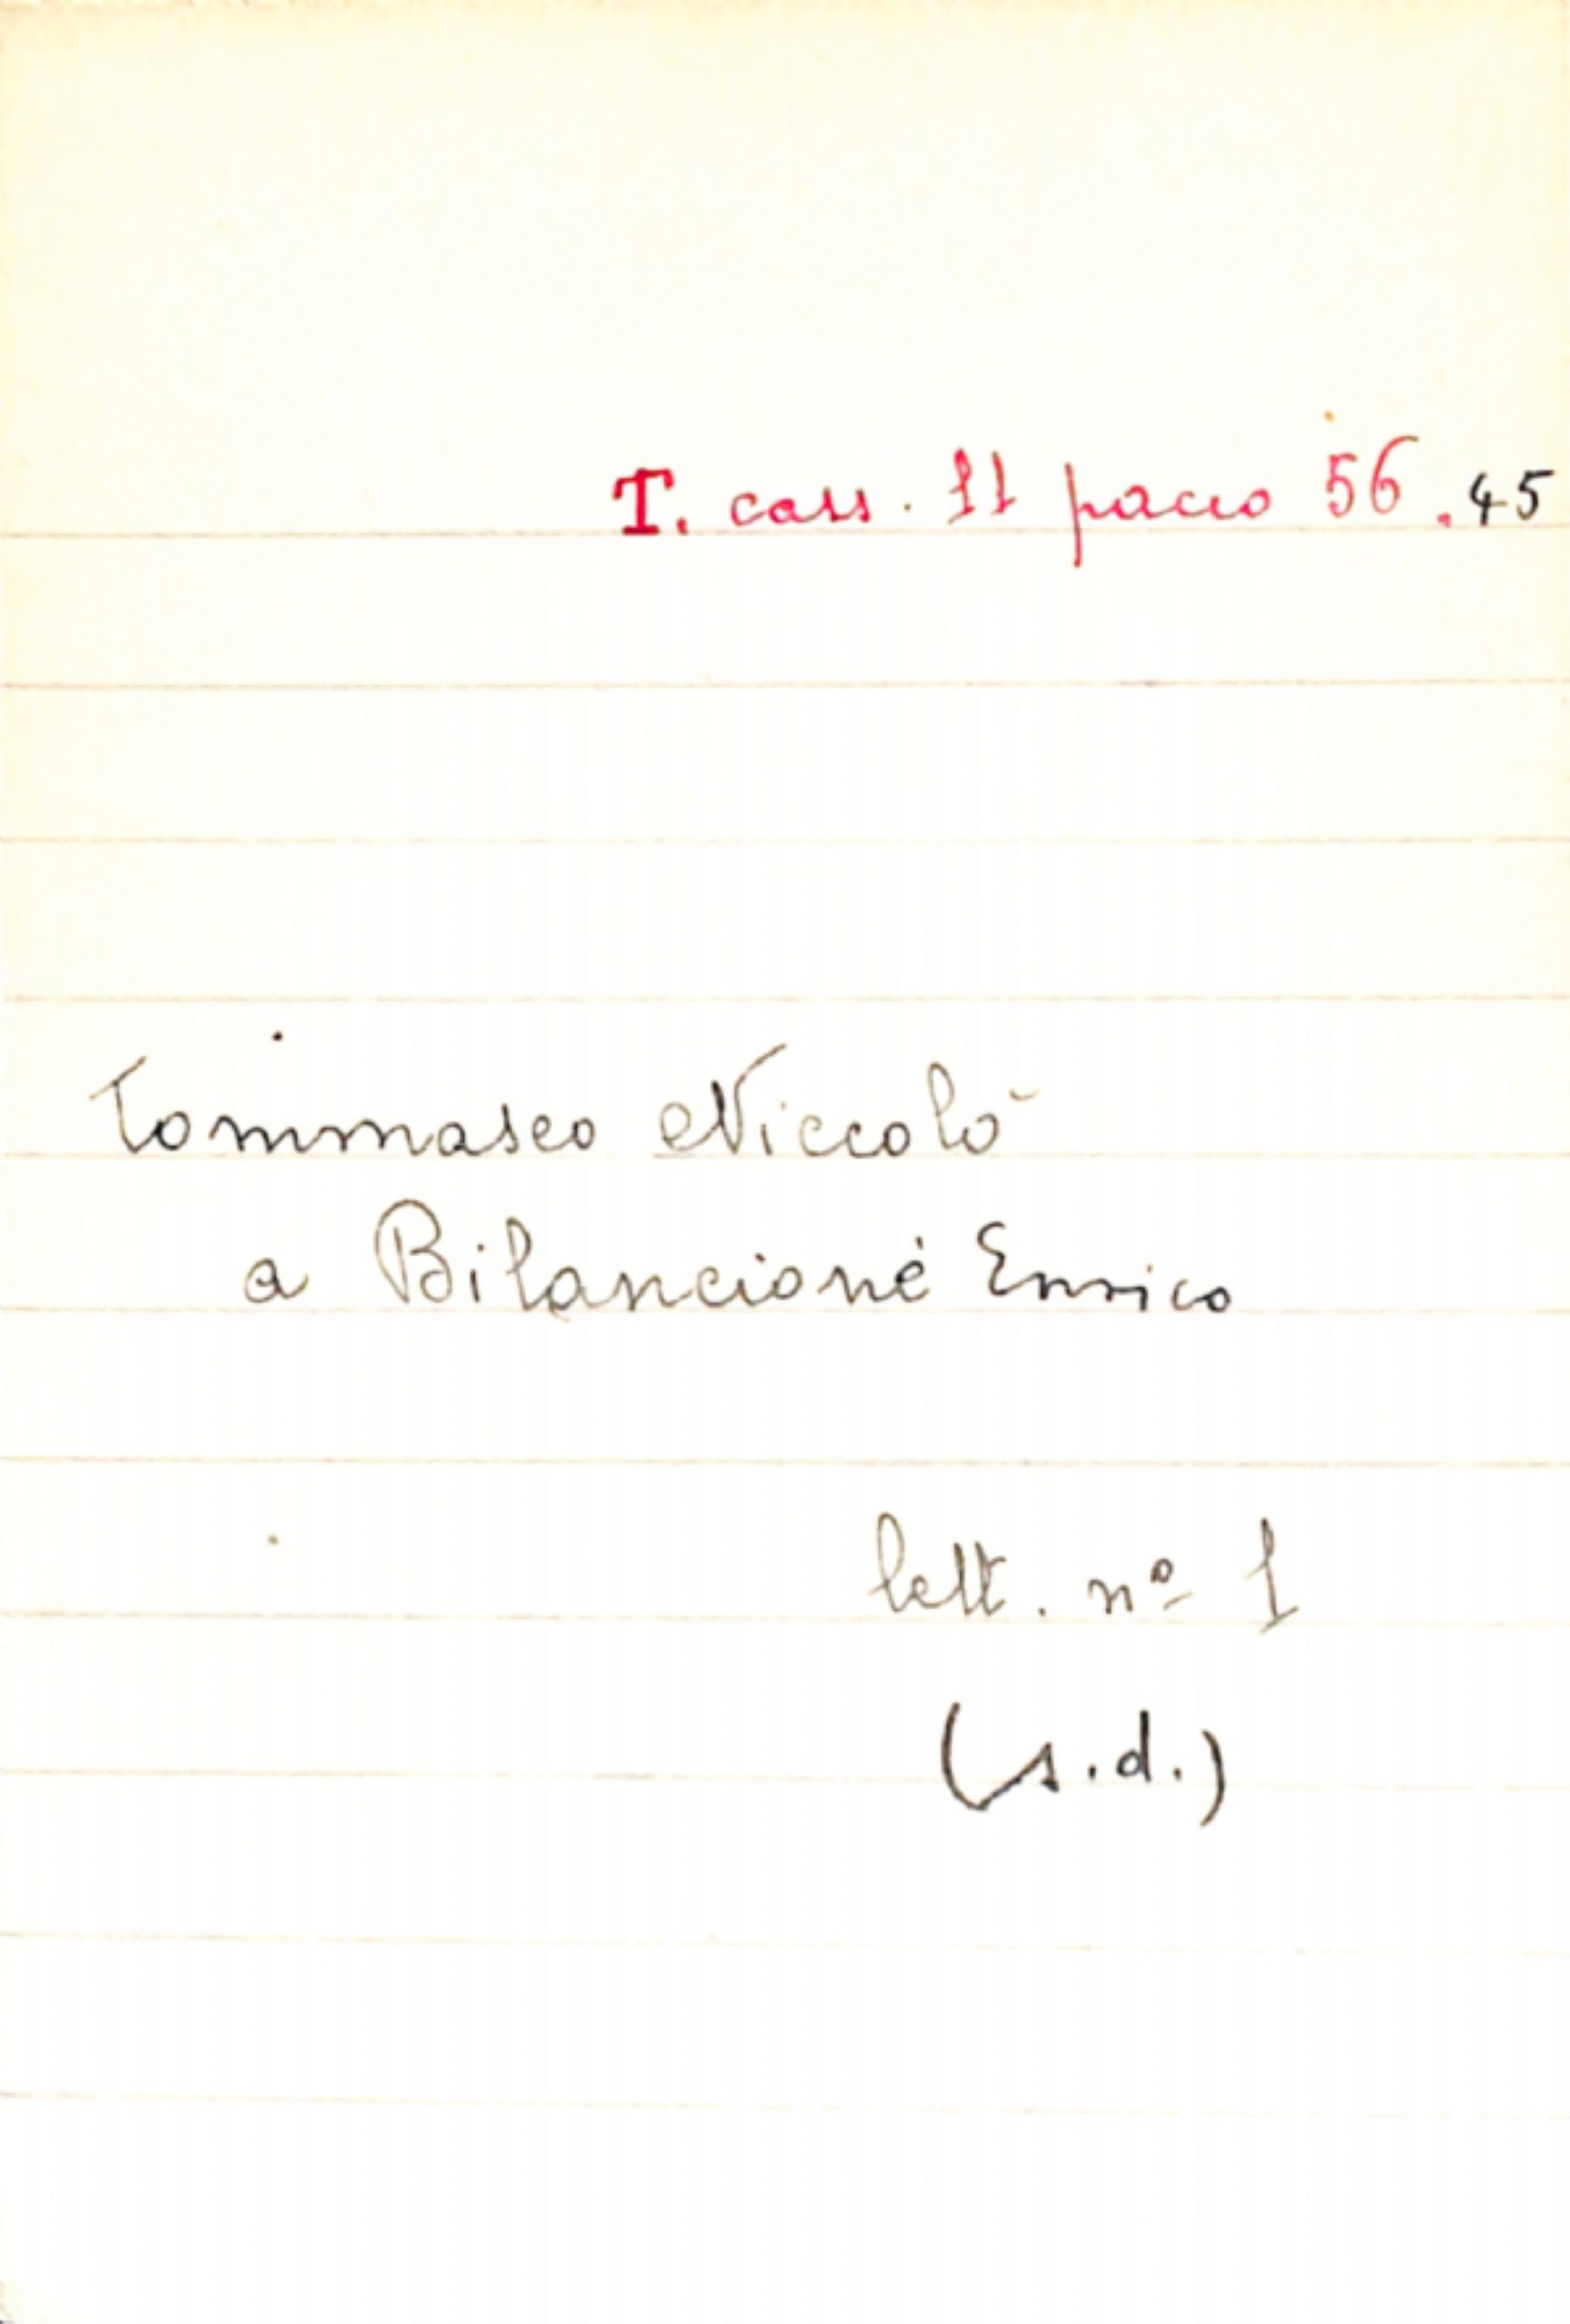 T. cass. 11 pacco 56.45
Tommaseo Niccolò
a Bilancioné Enrico
lett. nº 1
(s.d.)